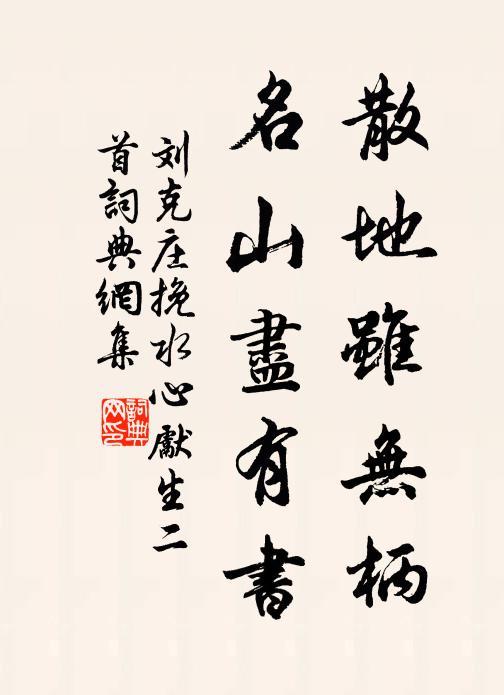 散地雖無柄
名山盡有書
刘克庄挽水心獻生二
首詞典網集
詞典
网印